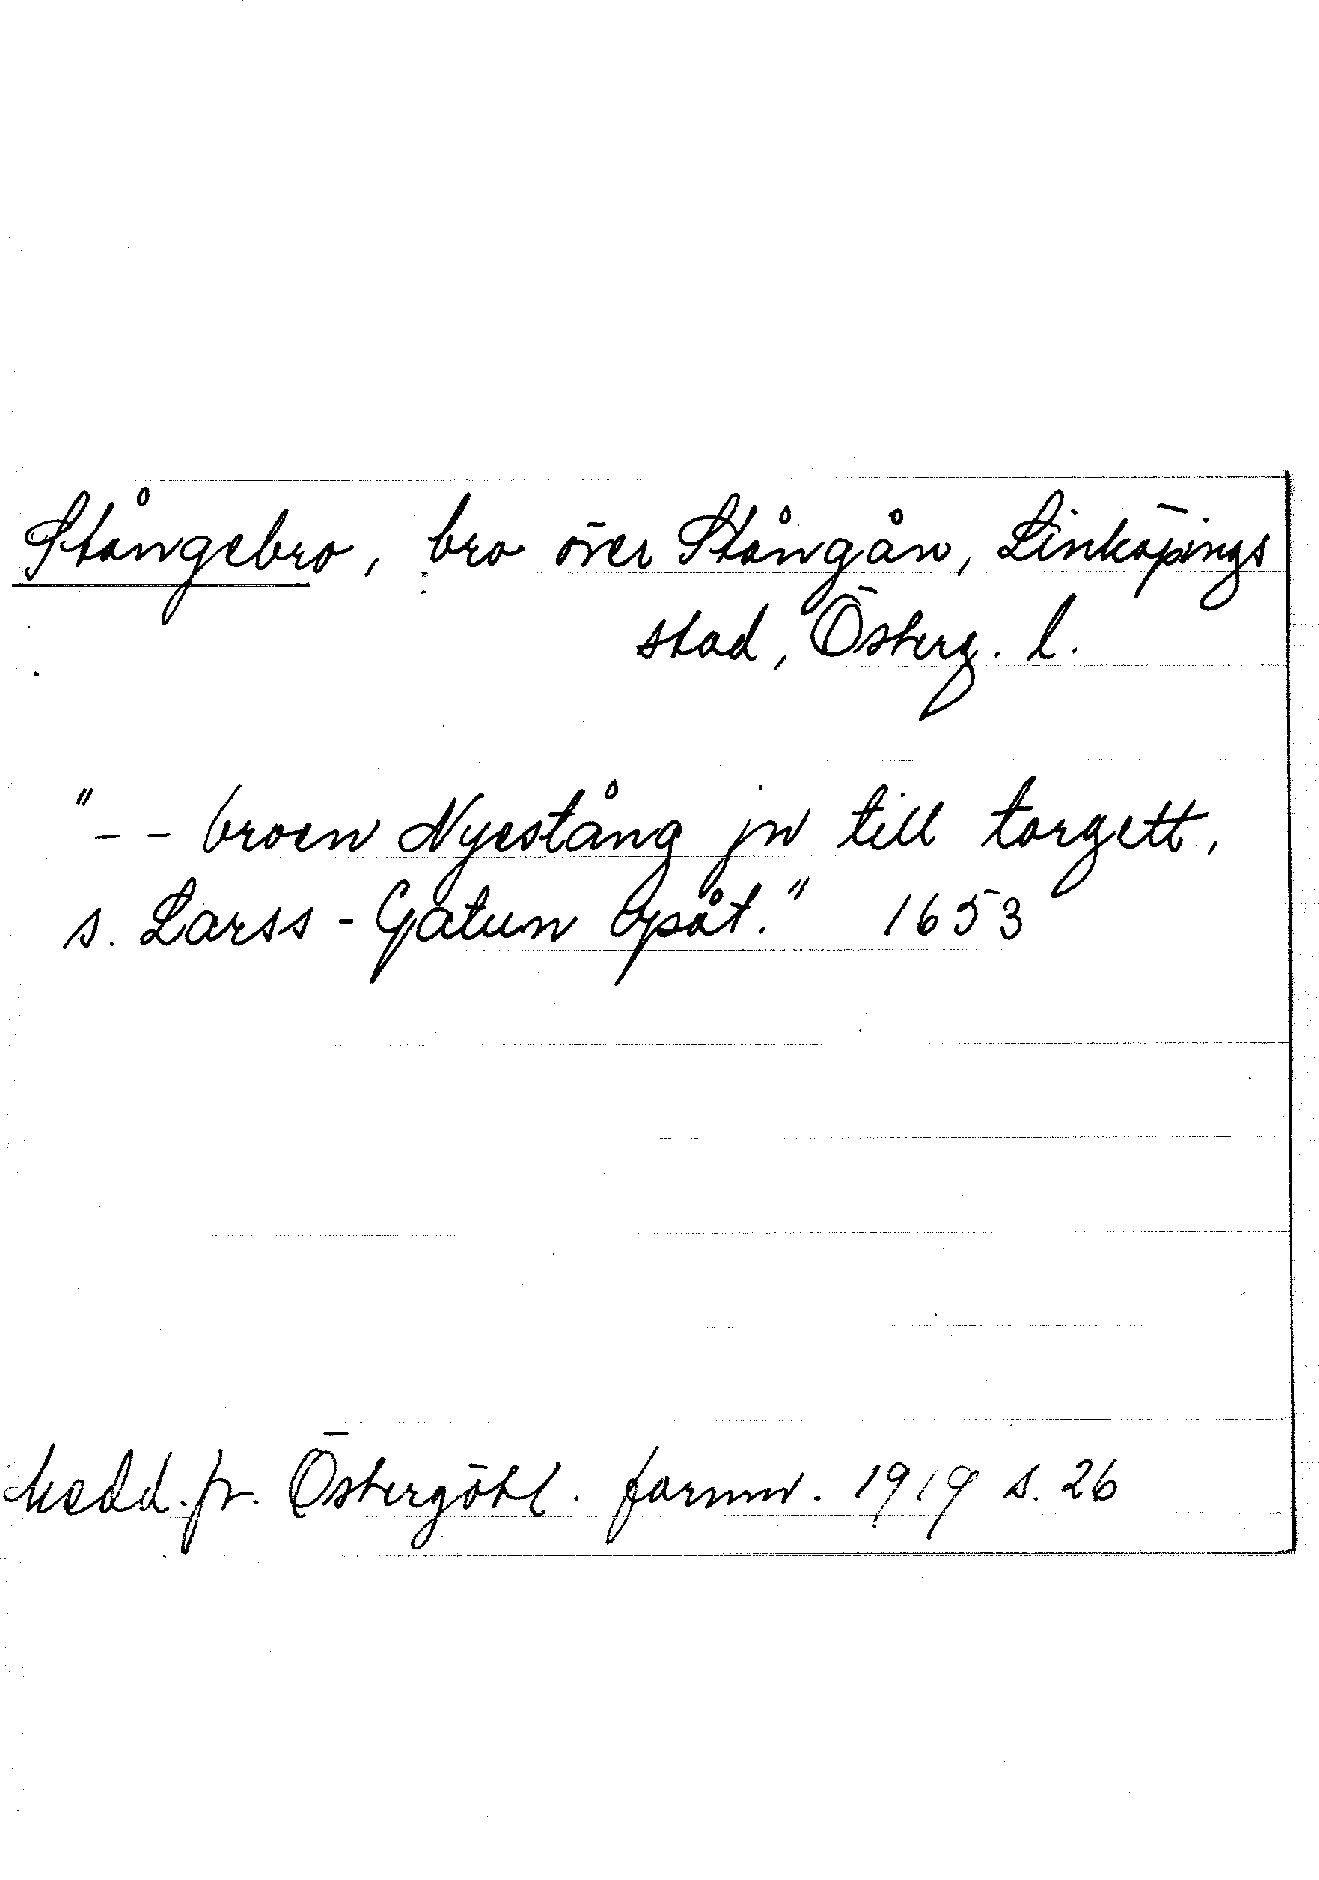 Stångebro, bro över Stångån, Linköpings
stad, Österg. l.
"- - broen Nyestång jn till torgett,
s. Larss - Gatun Opåt." 1653
Medd. fr. Östergötl. fornm. 1919 s. 26